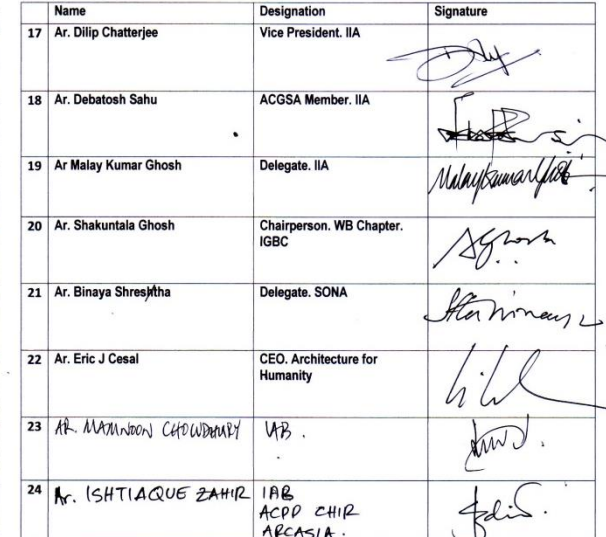 Name Designation Signature
17 Ar. Dilip Chatterjee Vice President. IIA
18 Ar. Debatosh Sahu ACGSA Member. IIA
19 Ar Malay Kumar Ghosh Delegate. IIA Malay Kumar Ghosh
20 Ar. Shakuntala Ghosh Chairperson. WB Chapter.
IGBC SGhosh
21 Ar. Binaya Shreshtha Delegate. SONA
22 Ar. Eric J Cesal CEO. Architecture for
Humanity
23 AR. MAMNOON CHOWDHURY IAB.
24 Ar. ISHTIAQUE ZAHIR IAB
ACPP CHIR
ARCASIA.